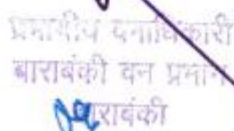 प्रभागीय वनाधिकारी
बाराबंकी वन प्रभाग
बाराबंकी